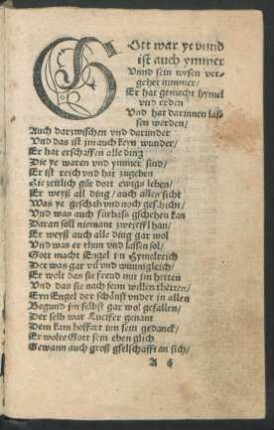 GOtt war ye vnnd
ist auch ymmer
Vnnd sein wesen ver-
gehet nimmer/
Er hat gemacht hymel
vnd erden
Vnd hat darinnen las-
sen werden/
Auch darzwischen vnd darunder
Vnd das ist jm auch keyn wunder/
Er hat erschaffen alle ding
Die ye waren vnd ymmer sind/
Er ist reich vnd hat zugeben
zeitlich gůt dort ewigs leben/
Er weyß all ding/ auch alles sicht
Was ye geschah vnd noch geschicht/
Vnd was auch fürbaß gschehen kan
Daran soll niemant zweyfel han/
Er weyß auch alle ding gar wol
Vnd was er thun vnd lassen sol/
Gott macht Engel im Hymelreich
Der was gar vil vnd wunnigleich/
Er wolt das sie freud mit im hetten
Vnd das sie nach seim willen thetten/
Ein Engel der schönst vnder in allen
Begund im selbst gar wol gefallen/
Der selb war Lucifer genant
Dem kam hoffart inn sein gedanck/
Er wolte Gott sein eben glich
Gewann auch groß gselschafft an sich/
A 6